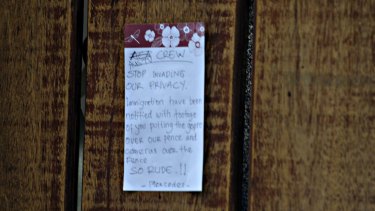 CREW
STOP INVADING
OUR PRIVACY.
Immigration have been
notified with footage
of you putting the gopro
over our fence and
cameras over the
fence
SO RUDE.!!